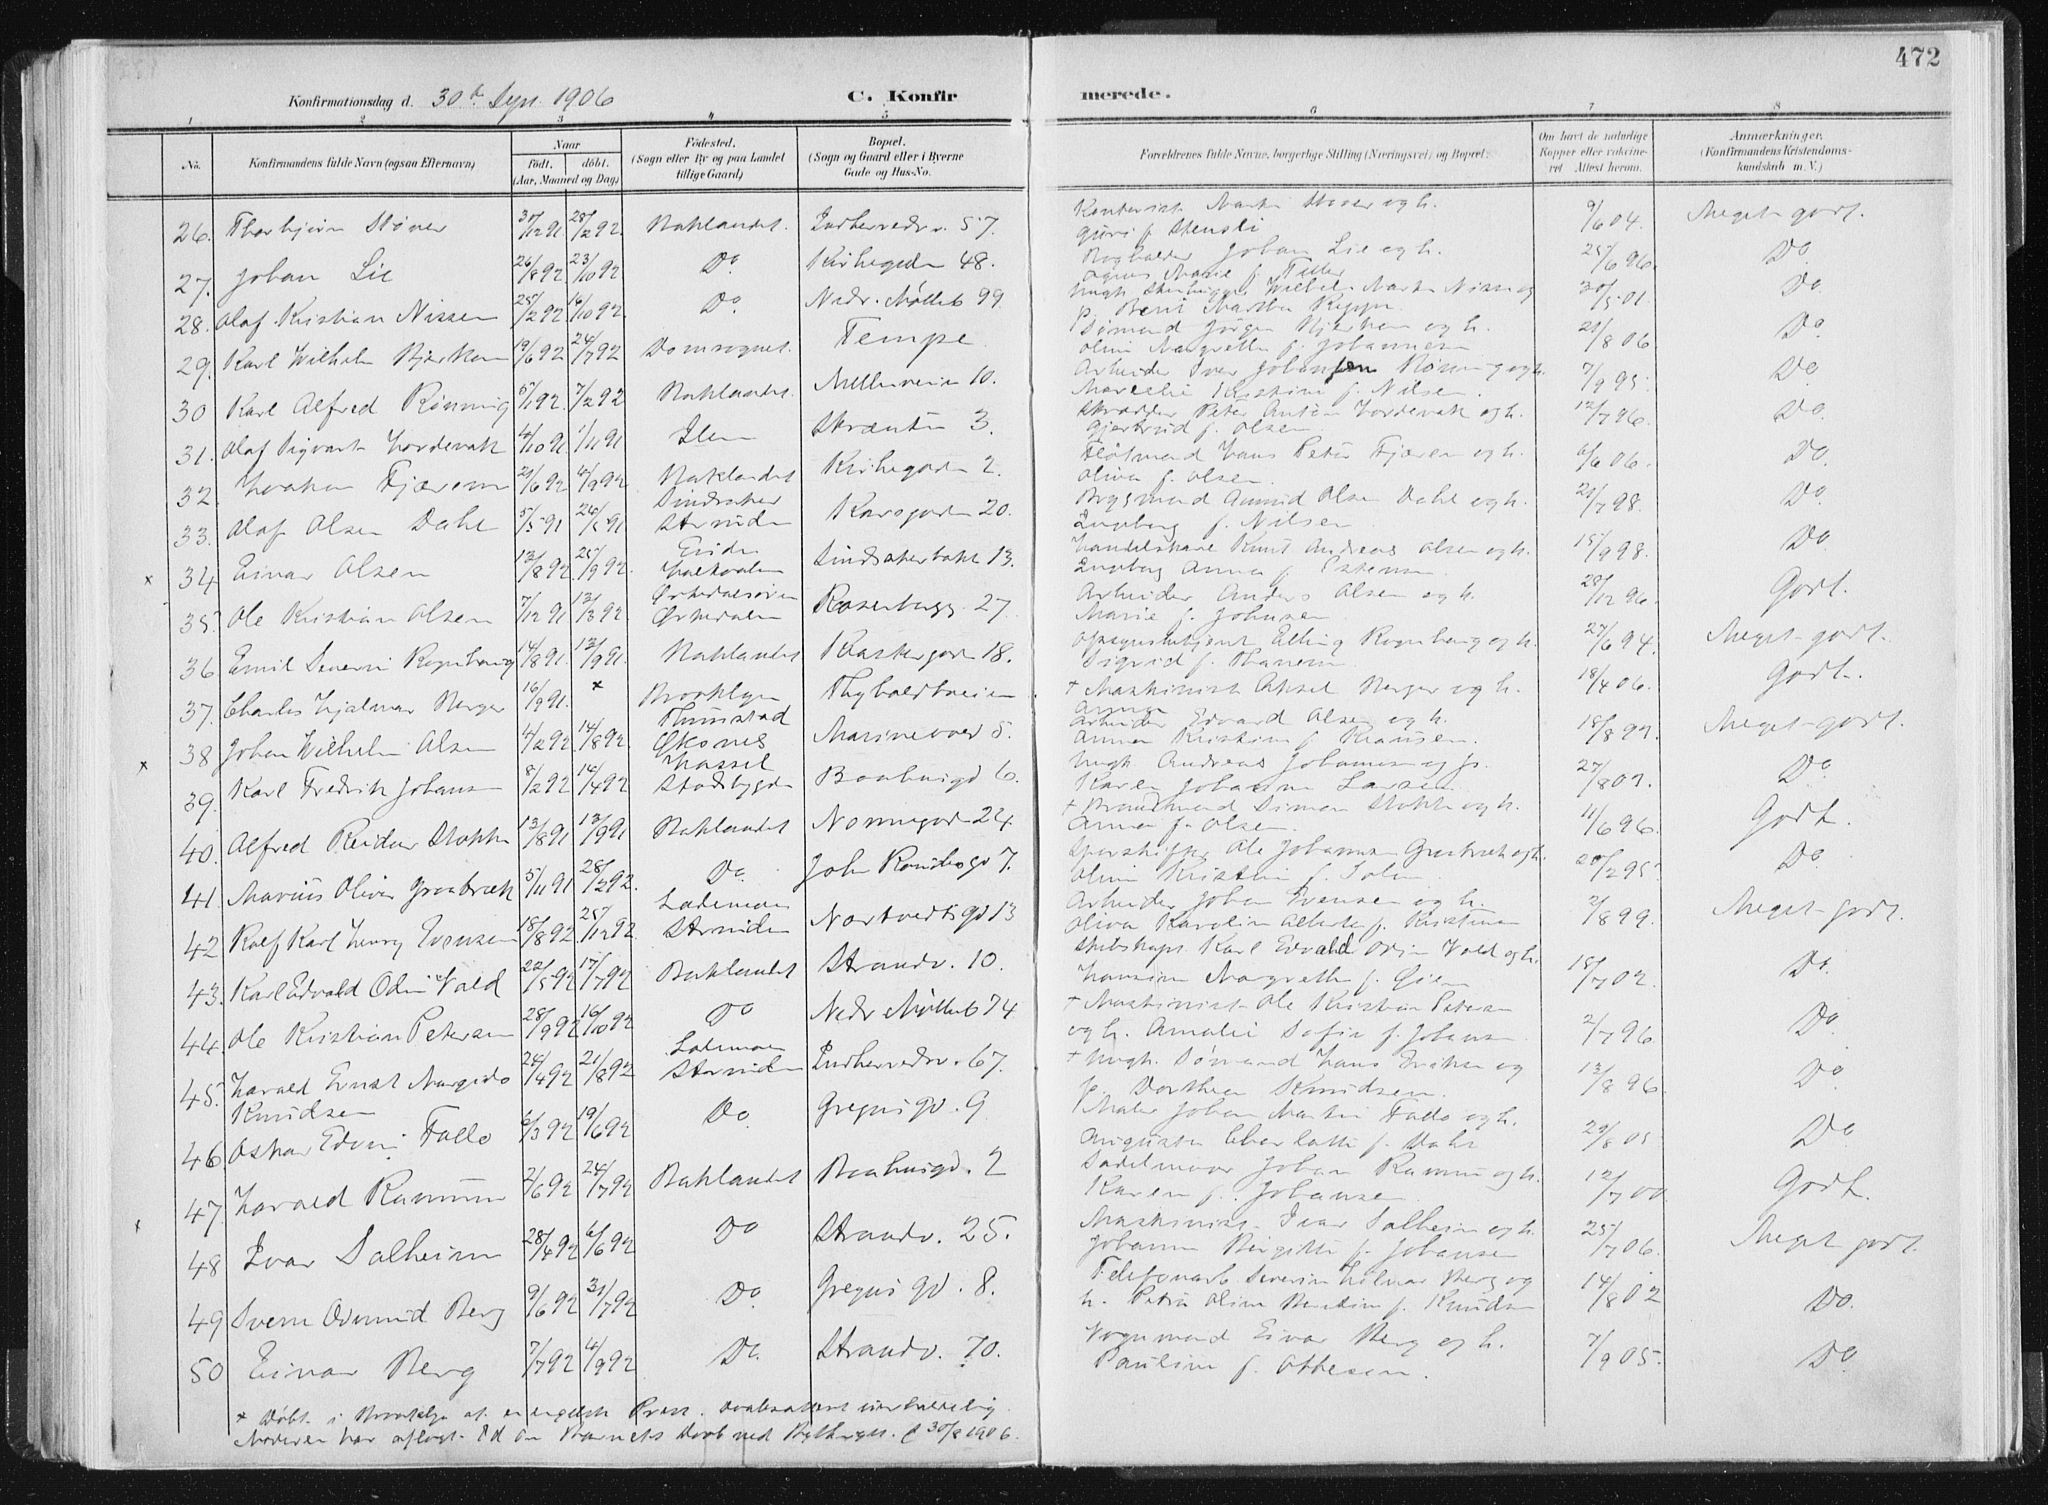 472
Konfirmationsdag d. 30te Sept. 1906 C. Konfirmerede.
1 2 3 4 5 6 7 8
No. Konfirmandens fulde Navn (ogsaa Efternavn) Naar født. døbt. (Aar, Maaned og Dag) Fødested. (Sogn eller By og paa Landet tillige Gaard) Bopæl. (Sogn og Gaard eller i Byerne Gade og Hus-No. Forældrenes fulde Navne, borgerlige Stilling (Næringsvei) og Bopæl. Om havt de naturlige Kopper eller vaksineret Attest herom. Anmærkninger. (Konfirmandens Kristendomskundskab m. V.)
26. Thorbjørn Støver 30/12 91 28/2 92. Baklandet. Indherredsv. 57. Kontorist Martin Støver og h. Guri f. Stensli 9/6 04. Meget godt.
27. Johan Lie 26/8 92 23/10 92 Do Kirkegaden 48. Bogholder Johan Lie og h. Agnes Marie f. Tiller 25/6 96. Do
28. Olaf Kristian Nissen 25/2 92 16/10 92 Do Nedr. Møllenb 99 Ungk. Wilhelm Martin Nissen og p. Berit Martha 30/5 01. Do
29. Karl Wilhelm Bjerkan 19/6 92 24/7 92 Domsognet. Tempe Sømand Jørgen Bjerkan og h. Oline Margrethe f. Johannesen 21/8 06 Do
30 Karl Alfred Rønning 5/1 92. 7/2 92 Baklandet. Mellemveien 10. Arbeider Iver Johansen Rønning og h. Marselie Kristine f. Nilsen. 7/9 95. Do
31. Olaf Sigvart Hordevak 4/10 91. 1/11 91 Ilen Skrænten 3. Skrædder Peter Anton Hordevak og h. Gjertrud f. Olsen. 12/7 96. Do
32. Haakon Fjærem 21/6 92 4/9 92 Baklandet Kirkegaden 2. Fløtmand Hans Peter Fjærem og h. Oliva f. Olsen. 6/6 06. Do
33. Olaf Olsen Dahl 5/5 91 26/5 91 Sindsaker Strinden Korsgaden 20. Bygsmand Amund Olsen Dahl og h. Ingeborg f. Nilsen 21/7 98. Do
x 34 Einar Olsen 13/8 92. 25/9 92. Sindsakerbakk 13. Handelskarl Knut Andreas Olsen og h. Ingeborg Anna f. Estensen. 15/9 98. Do
35. Ole Kristian Olsen 7/12 91 Orkedalsøren Orkedalen Rosenborgg. 27. Arbeider Anders Olsen og h. Marie f. Johnsen. 28/12 96. Godt.
36 Emil Severin Rognhaug 14/8 91. 13/9 91. Baklandet Klostergaden 18. Opsynsbetjent Elling Rognhaug og h. Sigrid f. Thanem. 27/6 94. Meget godt.
37. Charles Hjalmar Berger 16/9 91. x Brooklyn Thyholdtveien + Maskinist Aksel Berger og h. Anna 18/4 06. Godt.
38 Johan Wilhelm Olsen 4/2 92 14/8 92. Øksnes Marinevold 5. Arbeider Edvard Olsen og h. Anna Kristine f. Klausen. 18/8 93. Meget godt.
x 39. Karl Fredrik Johansen 8/2 92 16/4 92 Hassel Stadsbygden Baahusgd 6. Ungk. Andreas Johansen og p. Karen Johanna Larsen 27/8 07. Do
40. Alfred Reidar Stokke 13/8 91 13/9 91 Baklandet Nonnegaden 24. + Brandmand Simon Stokke og h. Anna f. Olsen. 11/6 96. Godt.
41 Marius Oliver Graabræk 5/11 91 28/2 92. Do. Ole Johannes Graabræk og h. Oline Kristine f. Solem 20/2 95. Do
42 Rolf Karl Henry Evensen 18/8 92 25/12 92 Lademoen Strinden Nordtvedts gd 13 Arbeider Johan Evensen og h. Oliva Karoline Alberte f. Kristensen 2/8 99. Meget godt.
43. Karl Edvald Odin Vold 22/5 92 17/7 92 Baklandet Strandv. 10. Skibskapt. Karl Edvald Odin Vold og h. Hansine Margrethe f. Øien 15/7 02. Do.
44. Ole Kristian Petersen 28/9 92 16/10 92 Do Nedr Møllenb 74 + Maskinist Ole Kristian Petersen og h. Amalie Sofie f. Johansen. 2/7 96 Do
45. Harald Ernst Margido Knudsen 24/4 92 21/8 92 Lademoen Strinden Indherredsv. 67. + Ungk. Sømand Hans Eriksen og p. Dorthea Knudsen. 13/8 96 Do
46 Oskar Edvin Fallo 6/3 92 19/6 92 Do Gregus gd. 9 Maler Johan Martin Fallo og h. Augusta Charlotte f. Dahl 29/8 05 Do
47. Harald Ramum 2/6 92 24/7 92 Baklandet Baahusgd. 2 Sadelmager Johan Ramum og h. Karen f. Johansen. 12/7 00 Godt.
x 48 Ivar Solheim 28/4 92 6/6 92 Do Strandv. 25. Maskinist Ivar Solheim og h. Johanne Birgitte f. Johansen 25/7 06. Meget godt.
49 Svern Odmund Berg 9/6 92 31/7 92 Do Gregus gd. 8. Telefonarb. Severin Hilmar Berg og h. Petra Oline f. Knudsen 14/8 02 Do.
50 Einar Berg 7/7 92 4/9 92 Do. Strandv. 70. Vognmand Einar Berg og h. Pauline f. Ottesen. 7/9 05. Do
+ Døbt i Brooklyn af en engelsk Præst. Daabsattest
Moderen har aflagt Ed om Barnets Daab ved Bythinget. d 30/8 1906.